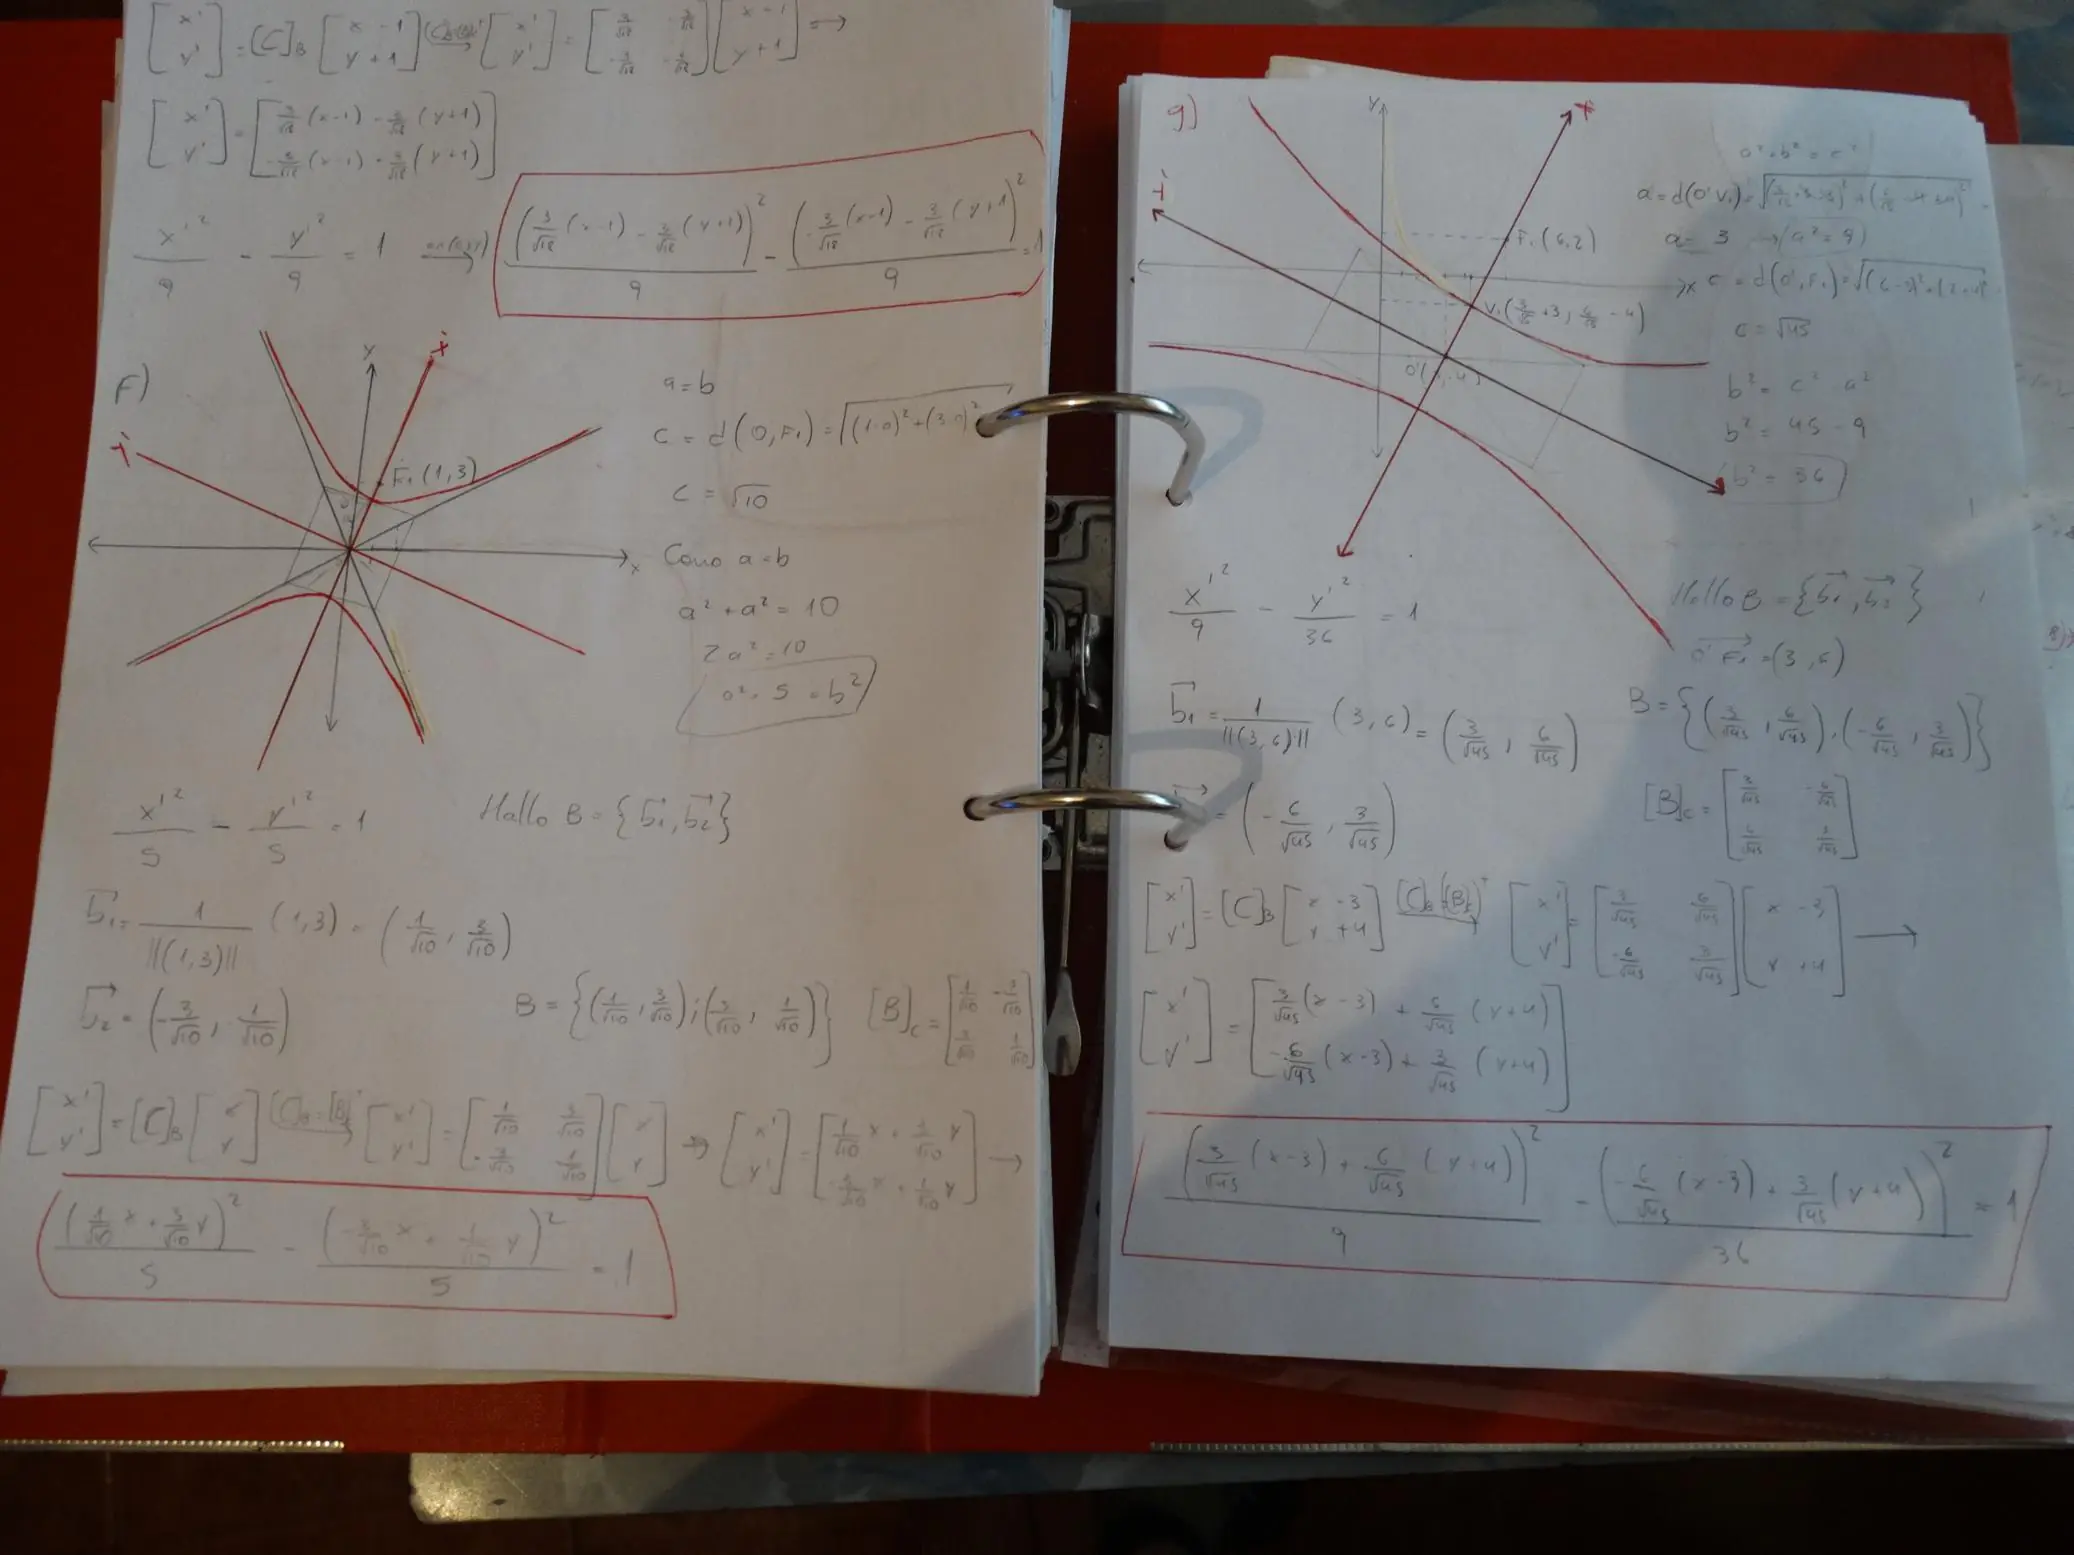 [x' y'] = [C]_B [x - 1, y + 1] → [x' y'] = [3/√18 -3/√18, -3/√18 -3/√18] [x - 1, y + 1] →
[x' y'] = [3/√18 (x-1) - 3/√18 (y+1), -3/√18 (x-1) - 3/√18 (y+1)]
x'²/9 - y'²/9 = 1 → (3/√18 (x-1) - 3/√18 (y+1))²/9 - (-3/√18 (x-1) - 3/√18 (y+1))²/9 = 1
F)
y
x
F₁(1,3)
a = b
c = d(0,F₁) = √((1-0)² + (3-0)²)
c = √10
Como a = b
a² + a² = 10
2a² = 10
a² = 5 = b²
x'²/5 - y'²/5 = 1
Hallo B = {b₁, b₂}
b₁ = 1/||(1,3)|| (1,3) = (1/√10, 3/√10)
= (-3/√10, 1/√10)
B = {(1/√10, 3/√10); (-3/√10, 1/√10)}
[B]_c =
[x' y'] = [C]_B [x y] → [x' y'] = [1/√10 3/√10, -3/√10 1/√10] [x y] → [x' y'] = [1/√10 x + 3/√10 y, -3/√10 x + 1/√10 y] →
(1/√10 x + 3/√10 y)²/5 - (-3/√10 x + 1/√10 y)²/5 = 1
g)
y
x
F₁(6,2)
V₁(3/√45 + 3, 6/√45 - 4)
a² + b² = c²
a = d(0' V₁) =
a = 3 → (a² = 9)
c = d(0', F₁) = √((6-3)² + (2+4)²)
c = √45
b² = c² - a²
b² = 45 - 9
b² = 36
x'²/9 - y'²/36 = 1
Hallo B = {b₁, b₂}
0'F₁ = (3, 6)
b₁ = 1/||(3,6)|| (3,6) = (3/√45, 6/√45)
B = {(3/√45, 6/√45), (-6/√45, 3/√45)}
= (-6/√45, 3/√45)
[B]_c = [3/√45 -6/√45, 6/√45 3/√45]
[x' y'] = [C]_B [x - 3, y + 4] → [x' y'] = [3/√45 6/√45, -6/√45 3/√45] [x - 3, y + 4] →
[x' y'] = [3/√45 (x-3) + 6/√45 (y+4), -6/√45 (x-3) + 3/√45 (y+4)]
(3/√45 (x-3) + 6/√45 (y+4))²/9 - (-6/√45 (x-3) + 3/√45 (y+4))²/36 = 1